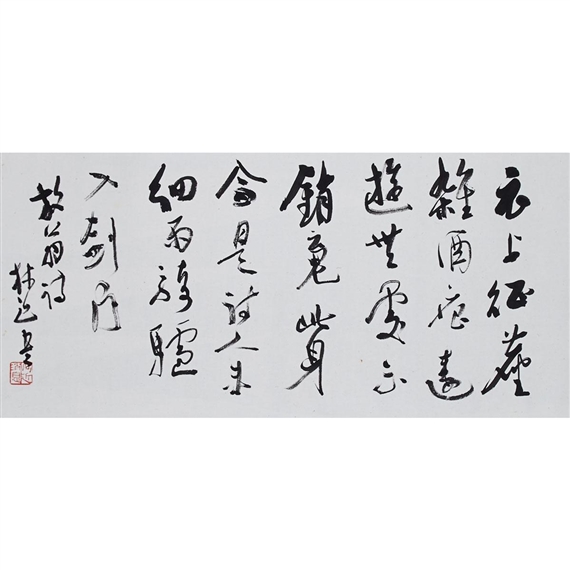 衣上征塵
雜酒痕遠
遊無處不
銷魂此身
合是詩人未
細雨騎驢
入劍門
放翁詩